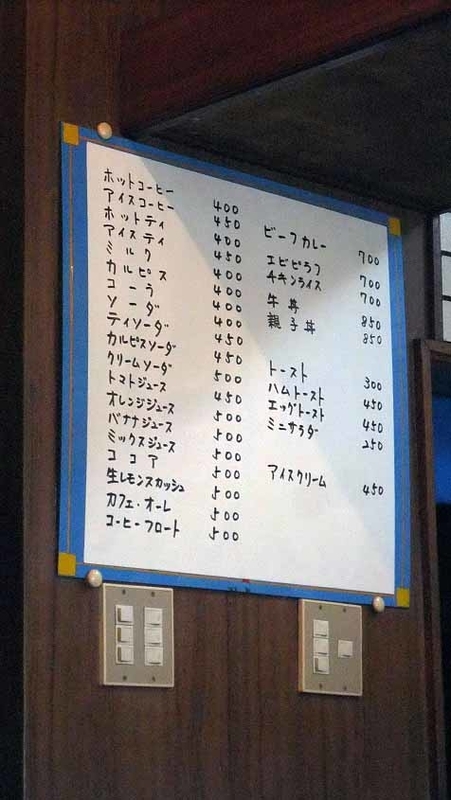 ホットコーヒー 400
アイスコーヒー 450
ホットティ 400
アイスティ 400
ミルク 400
カルピス 400
コーラ 400
ソーダ 400
ティソーダ 450
カルピスソーダ 450
クリームソーダ 500
トマトジュース 450
オレンジジュース 500
バナナジュース 500
ミックスジュース 500
ココア 500
生レモンスカッシュ 500
カフェ・オーレ 500
コーヒーフロート 500
ビーフカレー 700
エビピラフ 700
チキンライス 700
牛丼 850
親子丼 850
トースト 300
ハムトースト 450
エッグトースト 450
ミニサラダ 250
アイスクリーム 450